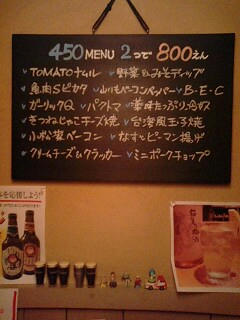 450 MENU 2つで 800えん
TOMATOナムル 野菜&みそディップ
魚肉Sピカタ 山いもベーコンペッパー B・E・C
ガーリックQ パクトマ 薬味たっぷり冷奴
きつねじゃこチーズ焼 台湾風玉子焼
小松菜ベーコン なすとピーマン揚げ
クリームチーズ&クラッカー ミニポークチョップ
を応援しよう!